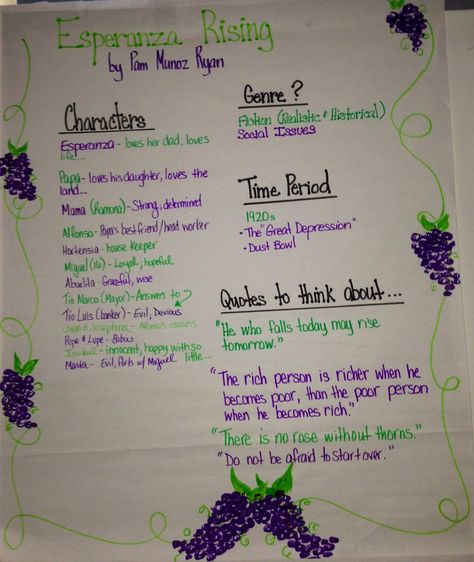 Esperanza Rising
by Pam Munoz Ryan
Characters
Esperanza - loves her dad, loves
life...
Papa - loves his daughter, loves the
land...
Mama (Ramona) - Strong, determined
Alfonso - Papa's best friend/head worker
Hortensia - house keeper
Miguel (16) - Loyal, hopeful
Abuelita - Graceful, wise
Tío Marco (Mayor) - Answers to
Tío Luis (banker) - Evil, Devious
Juan & Josephina - Alfonso's cousins
Pepe & Lupe - Babies
Isabel - innocent, happy with so
little...
Marta - Evil, flirts w/ Miguel
Genre?
Fiction (Realistic & Historical)
Social Issues
Time Period
1920s
• The "Great Depression"
• Dust Bowl
Quotes to think about...
"He who falls today may rise
tomorrow."
"The rich person is richer when he
becomes poor, than the poor person
when he becomes rich."
"There is no rose without thorns."
"Do not be afraid to start over."